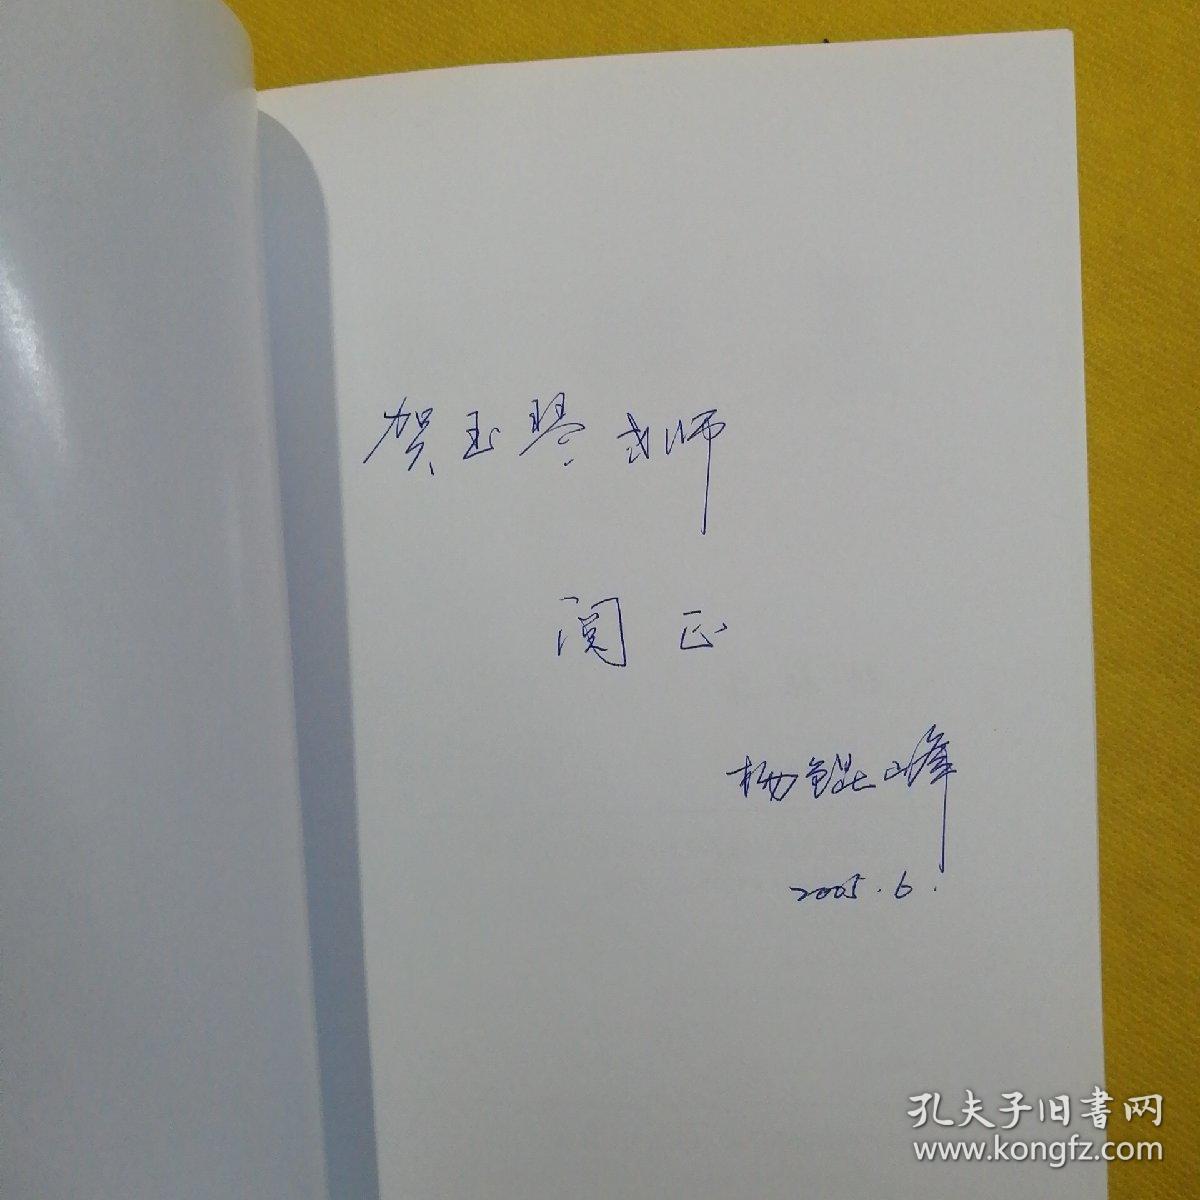 贺玉琴老师
阅正
杨锟峰
2005.6.
孔夫子旧书网
www.kongfz.com